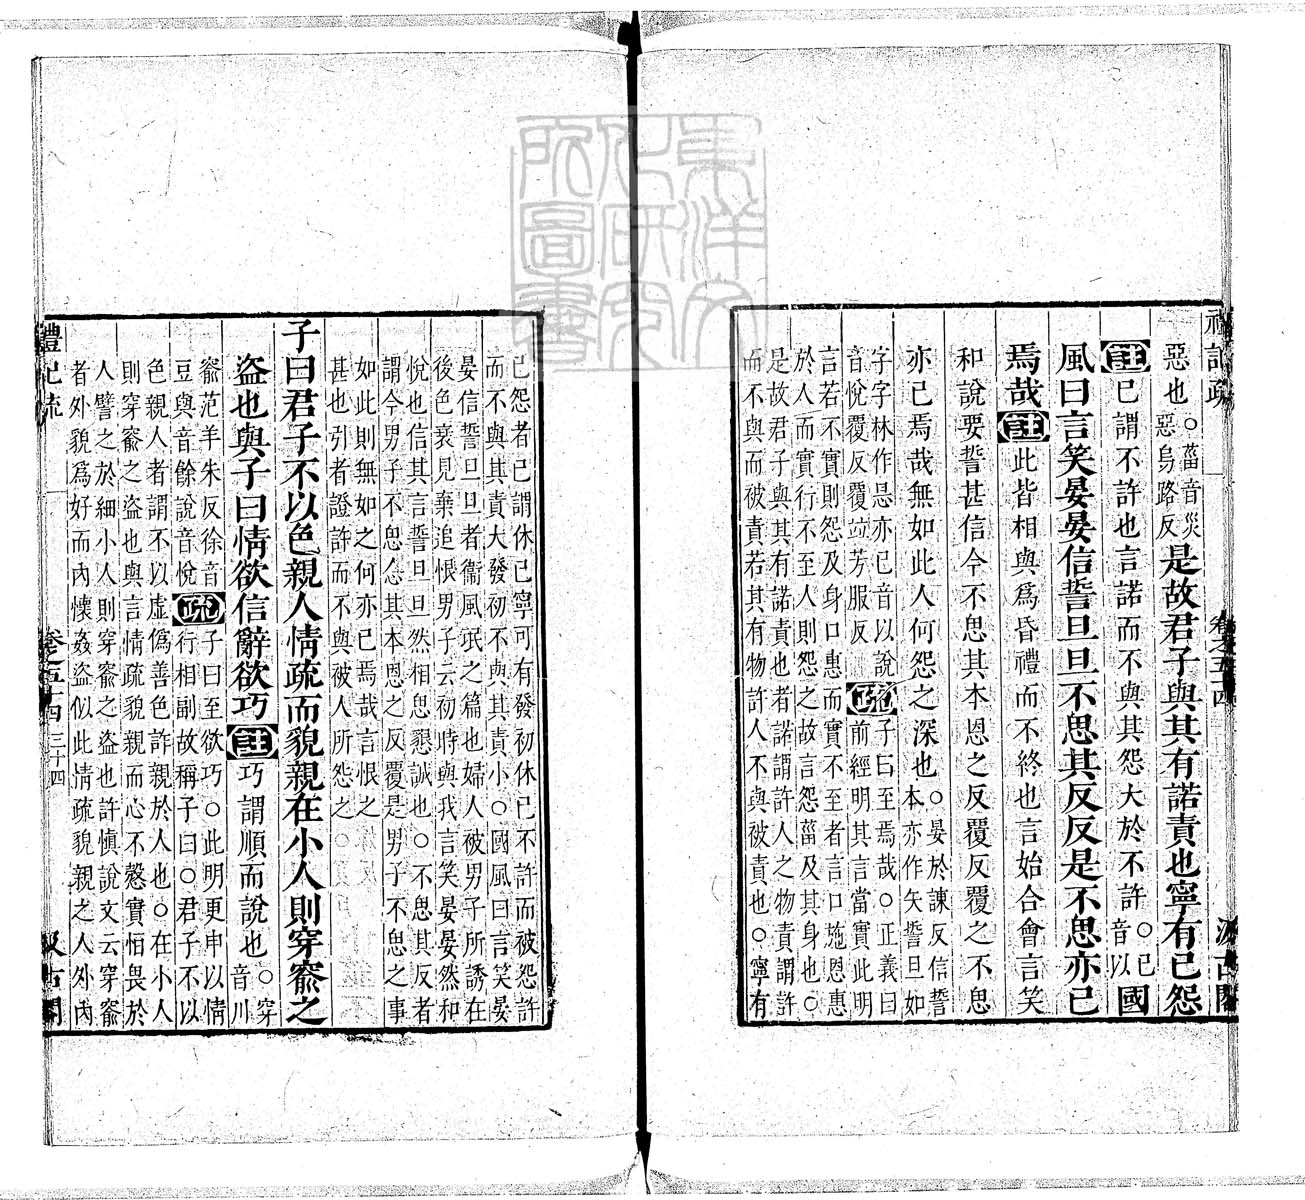 禮記疏 卷之五十四 汲古閣
惡也○菑音災惡烏路反是故君子與其有諾責也寧有已怨
註已謂不許也言諾而不與其怨大於不許○已音以國
風曰言笑晏晏信誓旦旦不思其反反是不思亦已
焉哉註此皆相與爲昏禮而不終也言始合會言笑
和說要誓甚信今不思其本恩之反覆反覆之不思
亦已焉哉無如此人何怨之深也○晏於諫反信誓本亦作矢誓旦如
字字林作悬亦已音以說音悅覆反覆竝芳服反疏子曰至焉哉○正義曰前經明其言當實此明
言若不實則怨及身口惠而實不至者言口施恩惠
於人而實行不至人則怨之故言怨菑及其身也○
是故君子與其有諾責也者諾謂許人之物責謂許
而不與而被責若其有物許人不與被責也○寧有
已怨者已謂休已寧可有發初休已不許而被怨許
而不與其責大發初不與其責小○國風曰言笑晏
晏信誓旦旦者衞風氓之篇也婦人被男子所誘在
後色衰見棄追恨男子云初時與我言笑晏晏然和
悅也信其言誓旦旦然相思懇誠也○不思其反者
謂今男子不思念其本恩之反覆是男子不思之事
如此則無如之何亦已焉哉言恨之
甚也引者證許而不與被人所怨之
子曰君子不以色親人情疏而貌親在小人則穿窬之
盜也與子曰情欲信辭欲巧註巧謂順而說也○穿音川
窬范羊朱反徐音豆與音餘說音悅疏子曰至欲巧○此明更申以情行相副故稱子曰○君子不以
色親人者謂不以虛僞善色詐親於人也○在小人
則穿窬之盜也與言情疏貌親而心不慤實恒畏於
人譬之於細小人則穿窬之盜也許愼說文云穿窬
者外貌爲好而內懷姦盜似此情疏貌親之人外內
禮記疏 卷五十四 三十四 汲古閣
東洋文化研究所圖書